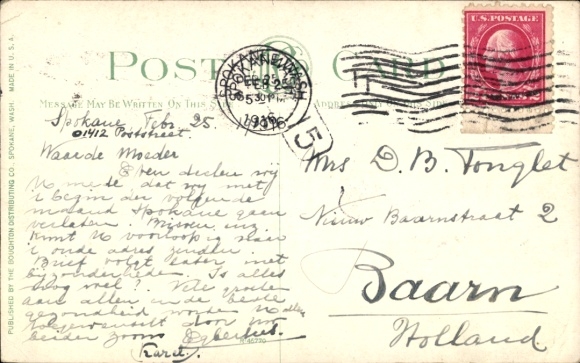 POST CARD
MESSAGE MAY BE WRITTEN ON THIS
U.S. POSTAGE
SPOKANE, WASH.
FEB 25
5 30 PM
1916
5
Spokane Febr. 25
01412 Poststreet
Waarde Moeder
Even deelen wij
U mede dat wij met
't begin der volgende
maand Spokane gaan
verlaten.
kunt U voorloopig naar
't oude adres zenden.
Brief volgt later met
bijzonderheden. Is alles
nog wel? Vele groeten
aan allen en de beste
gezondheid worden U allen
toegewenscht door Uw
beider zoons Egbertus.
Karel.
Mrs D. B. Tonglet
Nieuw Baarnstraat 2
Baarn
Holland
PUBLISHED BY THE BOUGHTON DISTRIBUTING CO., SPOKANE, WASH. MADE IN U.S.A.